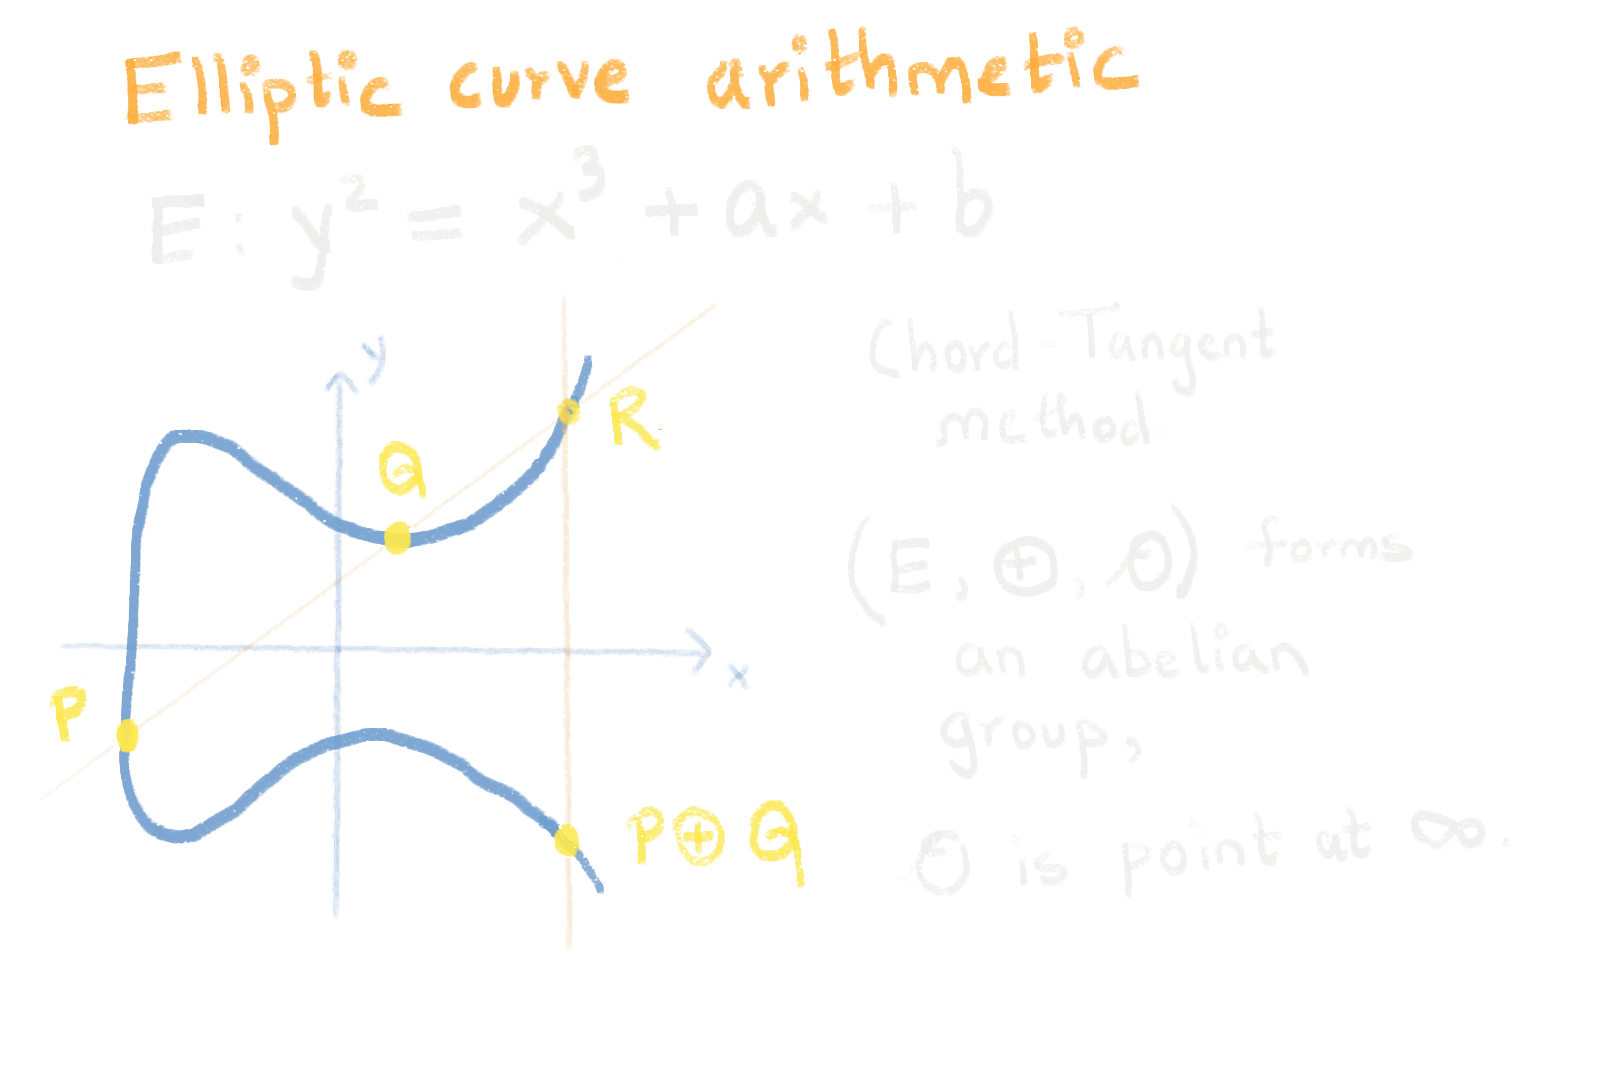 Elliptic curve arithmetic
E: y² = x³ + ax + b
Chord-Tangent
method
y
Q
R
(E, ⊕, O) forms
an abelian
group,
x
P
P⊕Q
O is point at ∞.